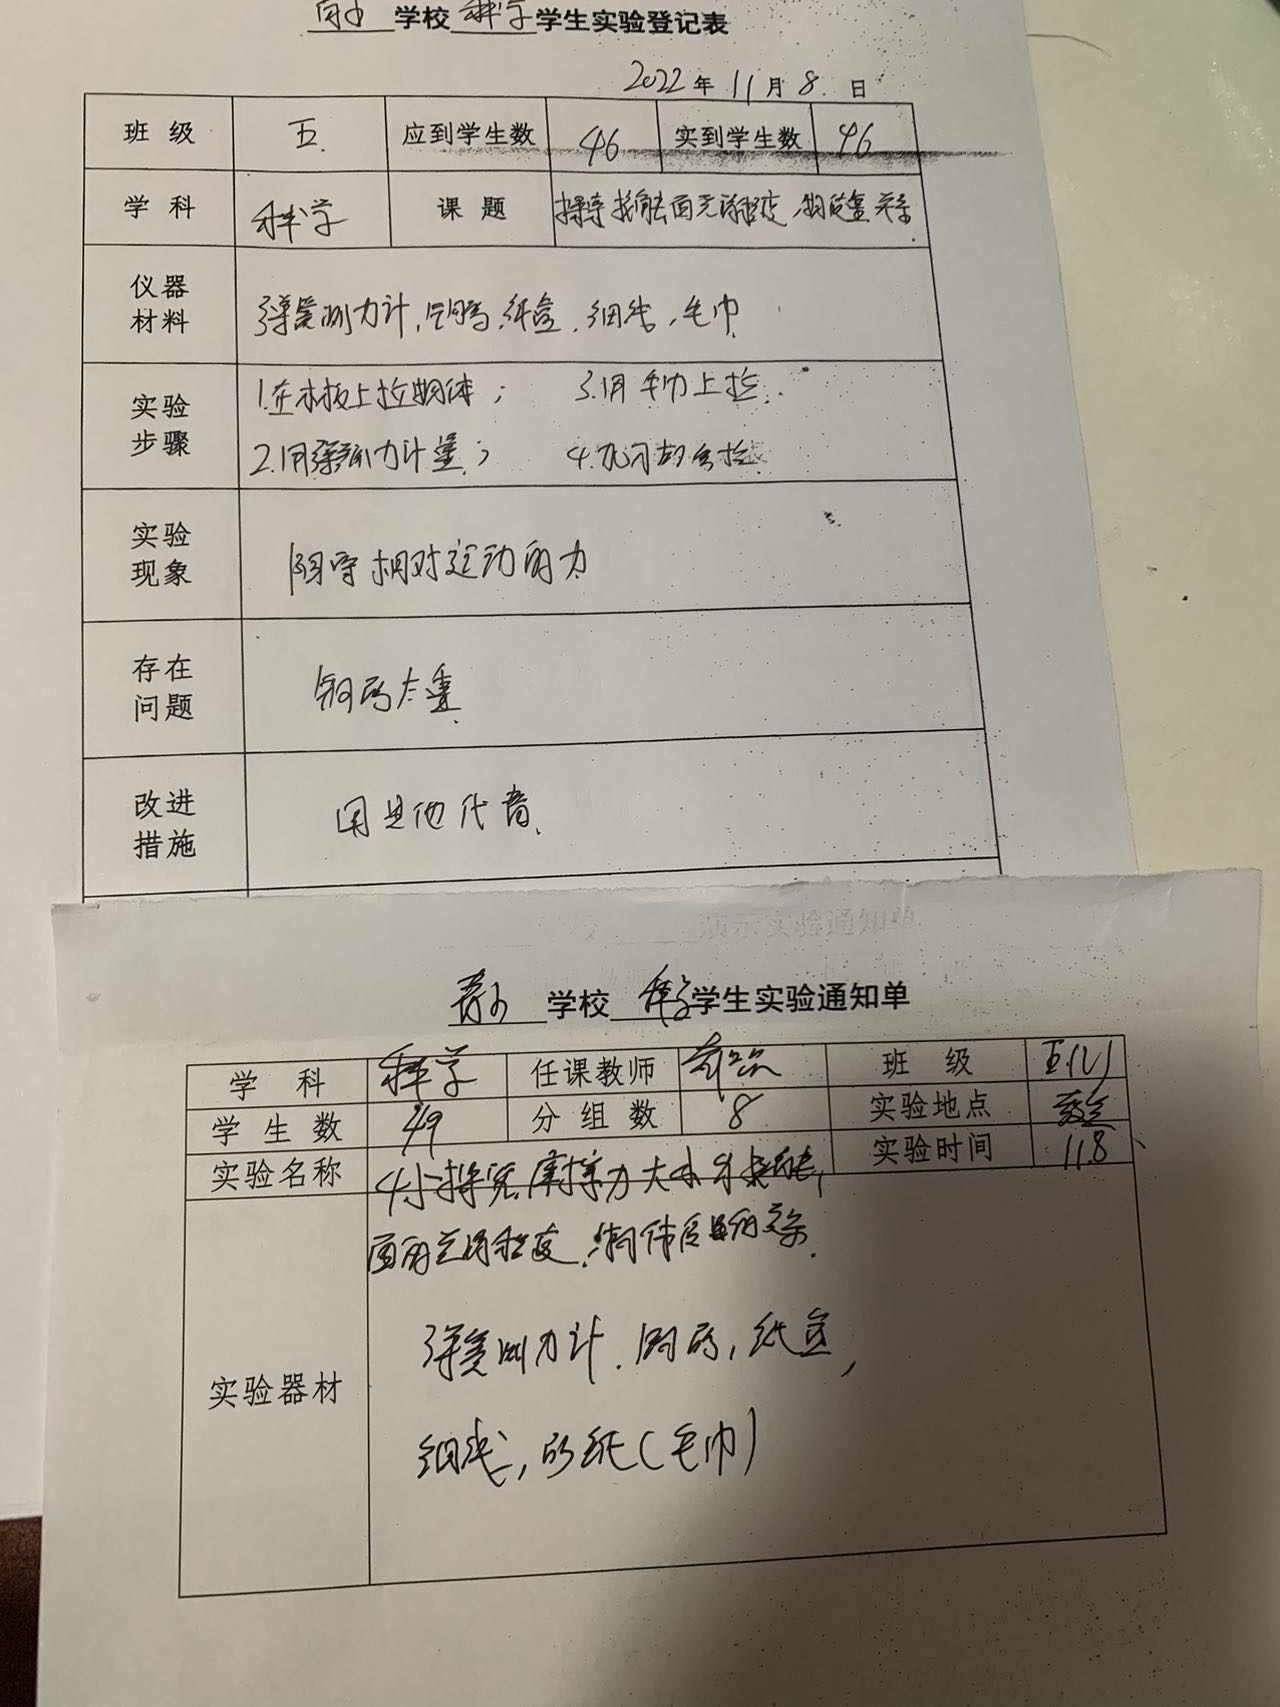 学校 科学 学生实验登记表
2022年 11月 8. 日
班级 五. 应到学生数 46 实到学生数 46
学科 科学 课题
仪器材料 弹簧测力计, 钩码, 纸盒, 细线, 毛巾
实验步骤 1.在木板上拉物体; 3.用 上拉.
2.用弹簧测力计量;
实验现象 阻碍相对运动的力
存在问题 钩码太重
改进措施 用其他代替.
演示实验通知单
学校 科学 学生实验通知单
学科 科学 任课教师 班级
学生数 49 分组数 8 实验地点
实验名称 探究摩擦力大小与接触 实验时间 11.8
面的光滑程度, 物体质量的关系.
实验器材 弹簧测力计. 钩码, 纸盒,
细线, 砂纸(毛巾)